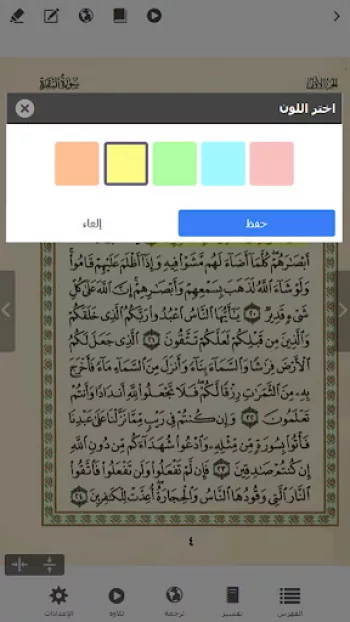 الجزء الأول سورة البقرة
اختر اللون
حفظ إلغاء
أَبْصَٰرَهُمْ كُلَّمَآ أَضَآءَ لَهُم مَّشَوْا۟ فِيهِ وَإِذَآ أَظْلَمَ عَلَيْهِمْ قَامُوا۟
وَلَوْ شَآءَ ٱللَّهُ لَذَهَبَ بِسَمْعِهِمْ وَأَبْصَٰرِهِمْ إِنَّ ٱللَّهَ عَلَىٰ كُلِّ
شَىْءٍ قَدِيرٌ ٢٠ يَٰٓأَيُّهَا ٱلنَّاسُ ٱعْبُدُوا۟ رَبَّكُمُ ٱلَّذِى خَلَقَكُمْ
وَٱلَّذِينَ مِن قَبْلِكُمْ لَعَلَّكُمْ تَتَّقُونَ ٢١ ٱلَّذِى جَعَلَ لَكُمُ
ٱلْأَرْضَ فِرَٰشًا وَٱلسَّمَآءَ بِنَآءً وَأَنزَلَ مِنَ ٱلسَّمَآءِ مَآءً فَأَخْرَجَ
بِهِۦ مِنَ ٱلثَّمَرَٰتِ رِزْقًا لَّكُمْ فَلَا تَجْعَلُوا۟ لِلَّهِ أَندَادًا وَأَنتُمْ
تَعْلَمُونَ ٢٢ وَإِن كُنتُمْ فِى رَيْبٍ مِّمَّا نَزَّلْنَا عَلَىٰ عَبْدِنَا
فَأْتُوا۟ بِسُورَةٍ مِّن مِّثْلِهِۦ وَٱدْعُوا۟ شُهَدَآءَكُم مِّن دُونِ ٱللَّهِ
إِن كُنتُمْ صَٰدِقِينَ ٢٣ فَإِن لَّمْ تَفْعَلُوا۟ وَلَن تَفْعَلُوا۟ فَٱتَّقُوا۟
ٱلنَّارَ ٱلَّتِى وَقُودُهَا ٱلنَّاسُ وَٱلْحِجَارَةُ أُعِدَّتْ لِلْكَٰفِرِينَ ٢٤
٤
الفهرس تفسير ترجمة تلاوة الإعدادات